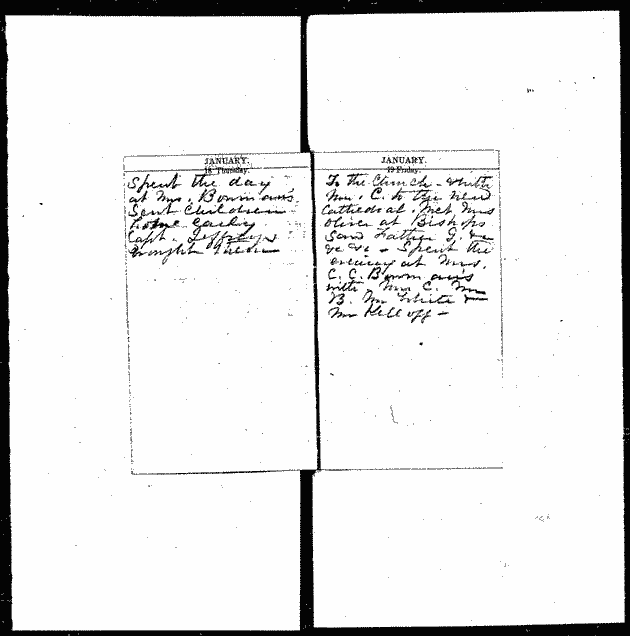 JANUARY.
18 Thursday.
Spent the day
at Mrs. Bowman's
Sent Children
home early
Capt. Jeffreys
brought them
JANUARY.
19 Friday.
To the Church - with
Mr. C. to the new
Cathedral. Met Mrs
Oliver at Bishops
Saw Father G. &c
&c &c - Spent the
evening at Mrs.
C. C. Bowman's
with Mr C. Mr
B. Mr White &
Mr Kelloff -